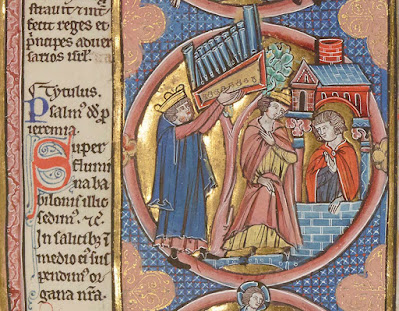 strauit ⁊ int
fecit reges et
p̃ncipes aduer
sarios
Tytulus.
psalm᷒ dd̃ p̱
ieremia.
Super
flumi
na ba
bilonis illic
sedim᷒. ⁊c.
In salicib᷒ ĩ
medio ei᷒ sus
pendim᷒ or
gana nr̃a.